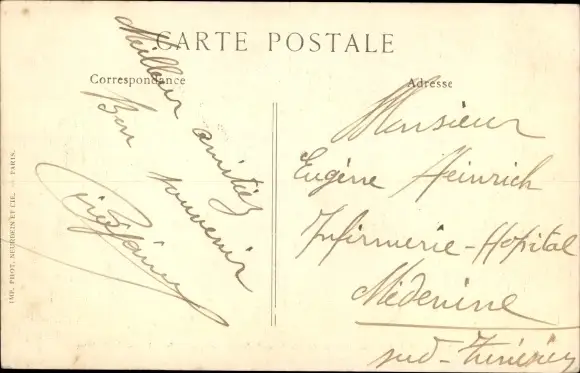 CARTE POSTALE
Correspondance
Adresse
Meilleur amitiés
Bon souvenir
Monsieur
Eugène Heinrich
Infirmerie-Hôpital
Médenine
sud-Tunisien
IMP. PHOT. NEURDEIN ET CIE. — PARIS.